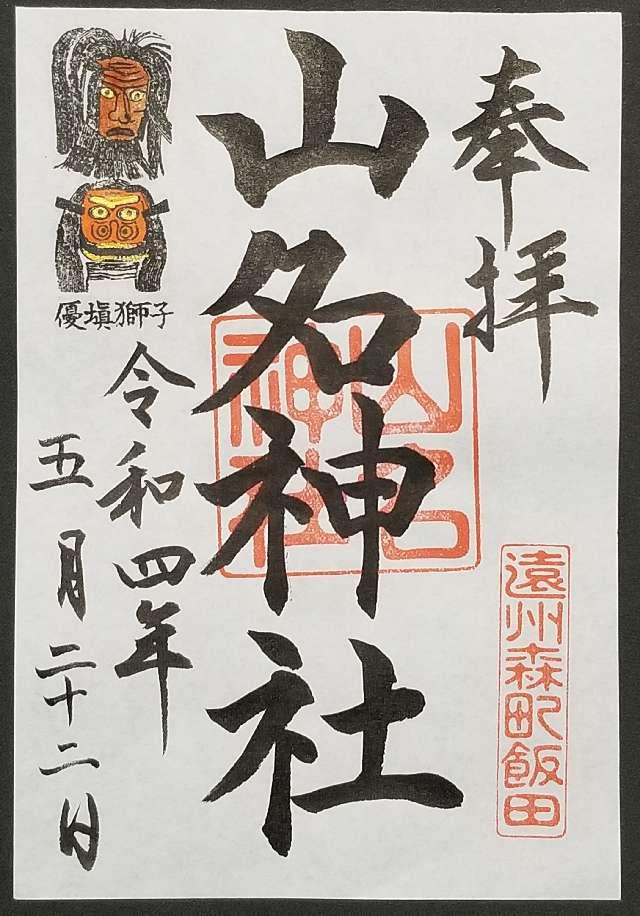 奉拝
山名神社
山名神社
遠州森町飯田
優塡獅子
令和四年
五月二十二日